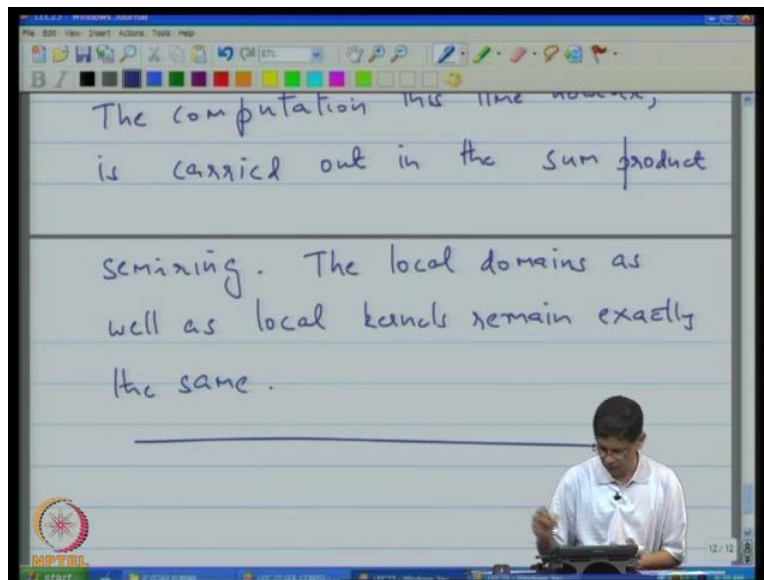 LEC23 - Windows Journal
File Edit View Insert Actions Tools Help
87%
B I
The computation this time however,
is carried out in the sum product
semiring. The local domains as
well as local kernels remain exactly
the same.
12/12
NPTEL
start